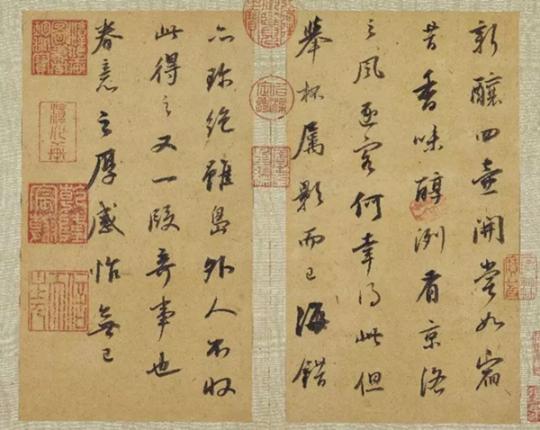 新釀四壺開嘗如宿
昔香味醇洌有京洛
之風逐客何幸得此但
舉杯属影而已海錯
亦珍絶雖島外人不收
此得之又一段奇事也
眷意之厚感怍無已